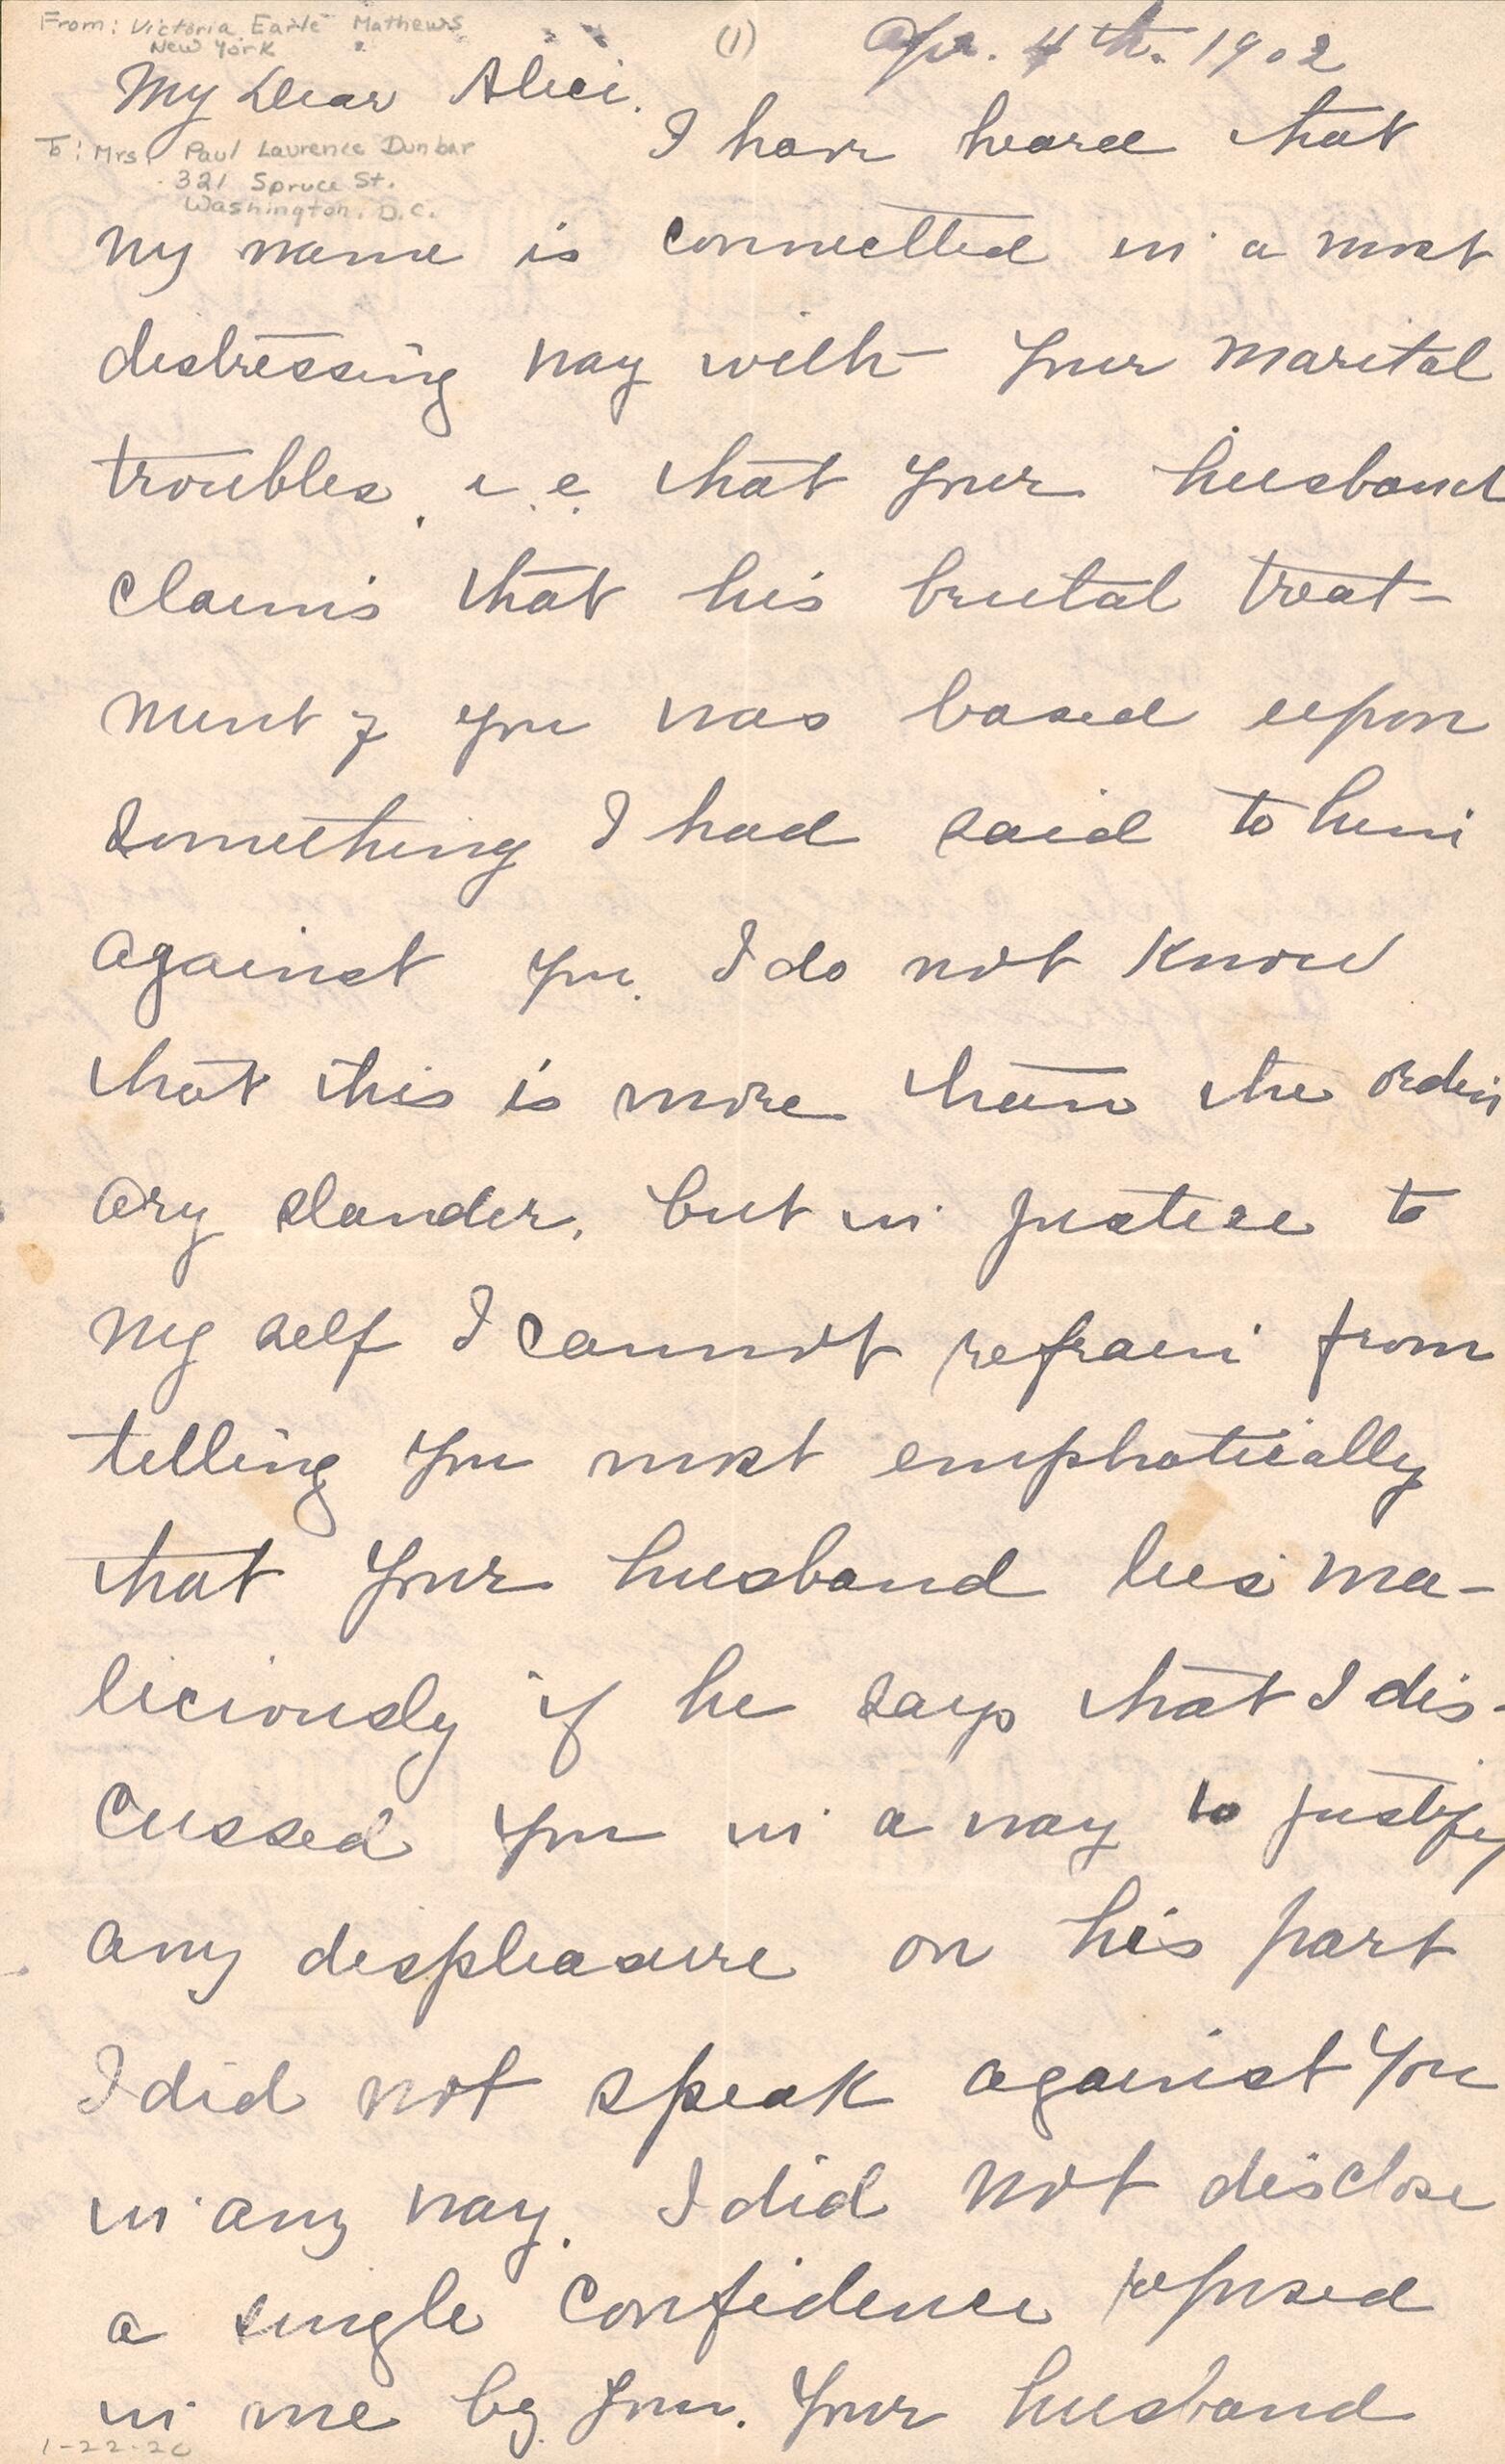 From: Victoria Earle Mathews
New York
(1)
Apr. 4th. 1902
My Dear Alice.
To: Mrs. Paul Laurence Dunbar
321 Spruce St.
Washington, D.C.
I have heard that
my name is connected in a most
distressing way with your marital
troubles, i.e. that your husband
claims that his brutal treat-
ment of you was based upon
something I had said to him
against you. I do not know
that this is more than the ordin
ary slander, but in justice to
my self I cannot refrain from
telling you most emphatically
that your husband lies ma-
liciously if he says that I dis-
cussed you in a way to justify
any displeasure on his part
I did not speak against you
in any way. I did not disclose
a single confidence reposed
in me by you. Your husband
1-22-20